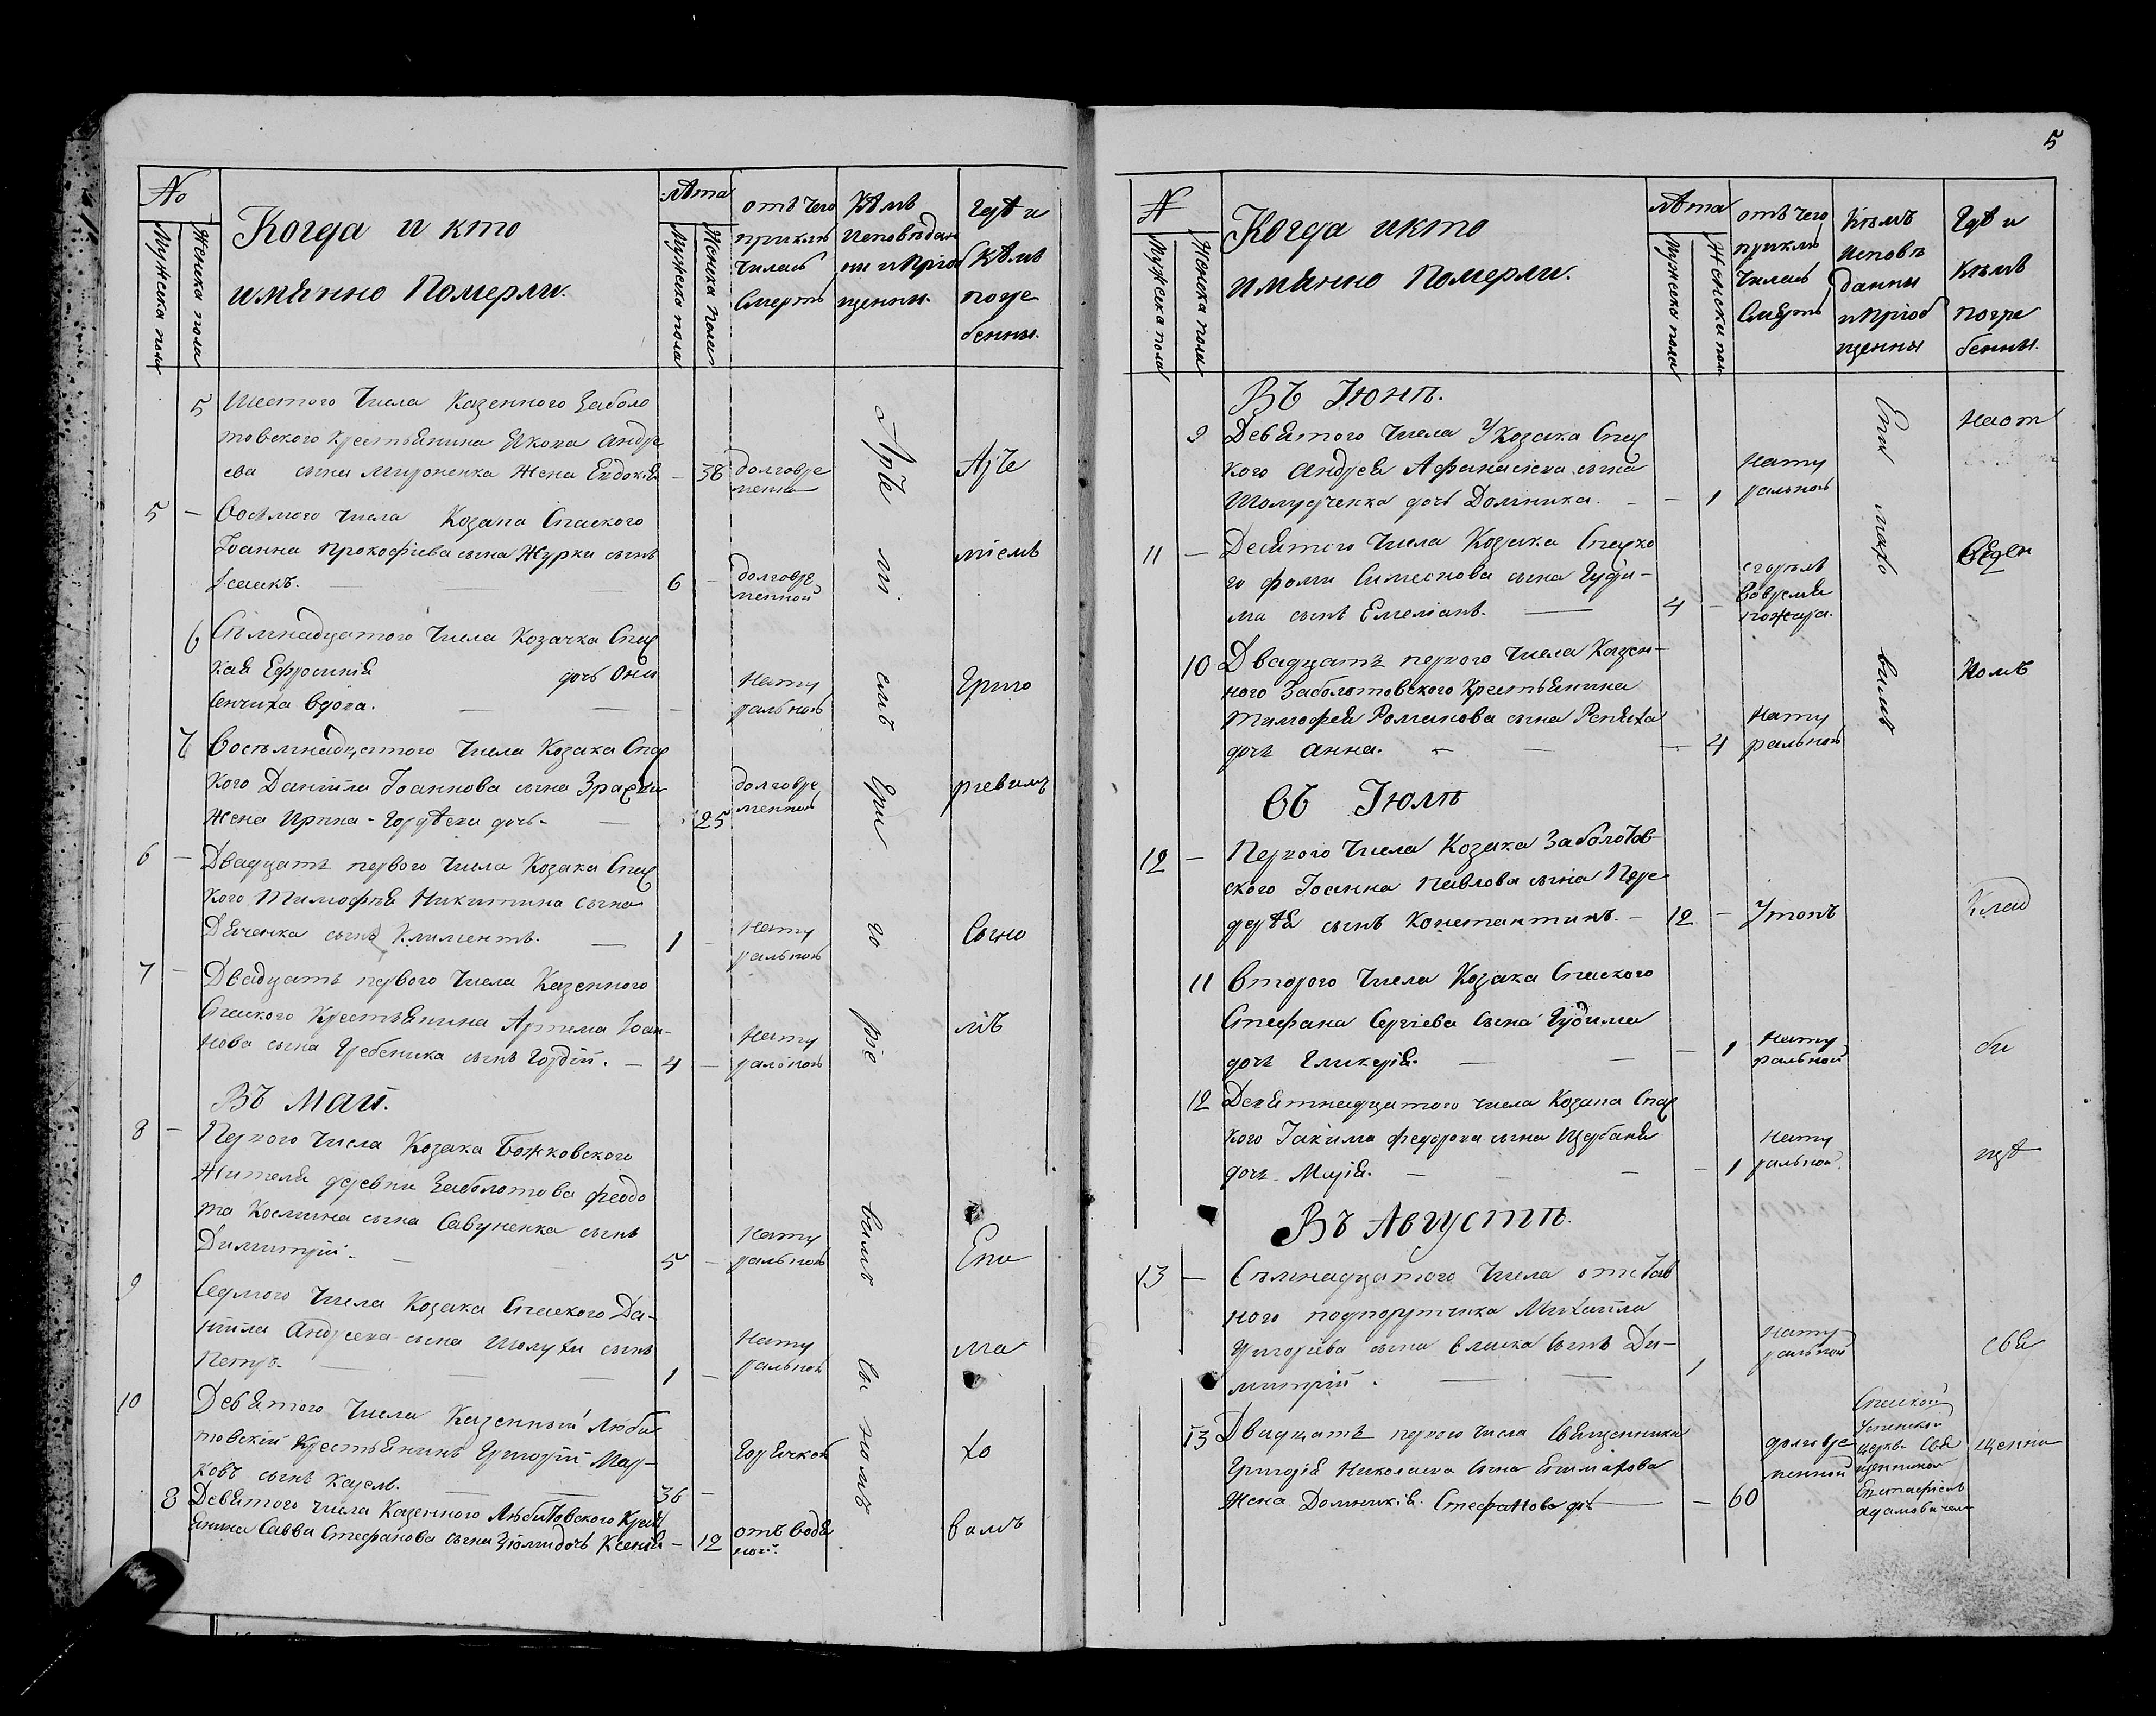 №
Мужеска пола
Женска пола
Когда и кто
имянно Померли.
лѣта
Мужеска пола
Женска пола
отъ чего
приклю
чилась
Смерть
Кѣмъ
исповѣдан
ни и приоб
щенны.
Гдѣ и
Кѣмъ
погре
бенны.
5 Шестого Числа Казенного Заболо
товского крестьянина Якова Андре
ева сына Мироненка Жена Евдокія - 38 долговре
менна
5 - Восьмого числа Козака Спаского
Іоанна Прокофіева сына Журки сынъ
Исаакъ. 6 - долговре
менной
6 Семнадцатого Числа Козачка Спас
кая Ефросинія дочь Они
сенчиха вдова. - Нату
ральной
7 Восемнадцатого Числа Козака Спас
кого Даніила Іоаннова сына
Жена Ирина Гордѣева дочь - 25 долговре
менной
6 - Двадцать первого Числа Козака Спас
кого Тимофѣя Никитина сына
Дяченка сынъ Климентъ. 1 - Нату
ральной
7 - Двадцать первого Числа Казенного
Спаского Крестьянина Артема Іоан-
нова сына Гребеника сынъ Гордій. - 4 - Нату
ральной
Въ Маѣ.
8 - Первого Числа Козака Божковского
Жителя деревни Заболотова Феодо
та Космина сына Савуненка сынъ
Димитрій. 5 - Нату
ральной
9 Седмого Числа Козака Спаского Да-
ніила Андреева сына Шолухи сынъ
Петръ. 1 - Нату
ральной
10 Девятого Числа Казенный Люби
товскій Крестьянинъ Григорій Мар-
ковъ сынъ 36 - Горячкой
8 Девятого числа Казенного Любитовского Крест
янина Савви Стефанова сына дочь Ксенія - 12 отъ водя
ной.
Арте
мъ
Гри
го
рie
вимъ
Арте
міемъ
Григо
риевимъ
сыно
мъ
Епи
ма
хо
вимъ
5
№
Мужеска пола
Женска пола
Когда и кто
имянно Померли.
лѣта
Мужеска пола
Женска пола
отъ чего
приклю
чилась
Смерть
Кѣмъ
исповѣ
данны
и приоб
щенны
Гдѣ и
Кѣмъ
погре
бенны.
Въ Іюнѣ.
9 Девятого Числа У Козака Спас
кого Андрея Афанасіева сына
Шолудченка дочь Домника. - 1 Нату
ральной
11 - Десятого Числа Козака Спаско
го Фоми Симеонова сына Гуди-
ми сынъ Емеліанъ. 4 - сгорѣлъ
вовремя
пожара.
10 Двадцать первого Числа Казен-
ного Заболотовского Крестьянина
Тимофея Романова сына Репяха
дочь Анна. - 4 Нату
ральной
Въ Іюлѣ
12 - Первого Числа Козака Заболотов
ского Іоанна Павлова сына Пере
дерѣя сынъ Константинъ. - 12 - Утопъ
11 Второго Числа Козака Спаского
Стефана Сергіева Сына Гудима
дочь Гликерія. - 1 Нату
ральной
12 Девятнадцатого числа Козака Спас
кого Іакима Федорова сына Щербаня
дочь Марія. - 1 Нату
ральной.
Въ Августѣ.
13 - Семнадцатого Числа отстав
ного подпорутчика Михаила
Григориева сына сынъ Ди-
митрій. 1 Нату
ральной
13 Двадцать первого числа Священника
Григорія Николаева Сына Епимахова
Жена Домникія Стефанова дочь - 60 долговре
менной
Епи
махо
вимъ
Спаской
Успенской
церкви Свя
щенникомъ
Епифаніемъ
Адамовичемъ
Наот
веден
номъ
Клад
би
щѣ
свя
щенни